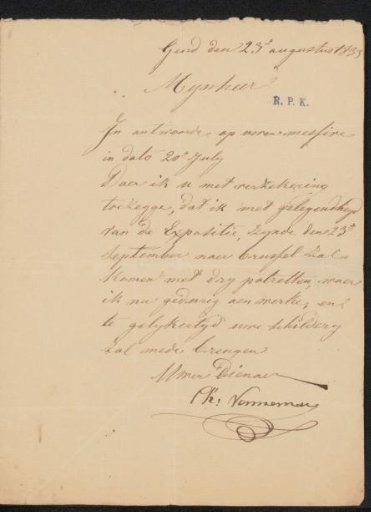 Gend den 23e augustus 1833
Mynheer
R. P. K.
In antwoorde op uwen messive
in dato 20e July
Daer ik u met verzekering
toezegge, dat ik met gelegendheyd
van de Expositie, zynde den 23e
September naer Brussel zal
komen met dry potretten, waer
ik nu gedurig aen werke, en
te gelykertyd uwe schildery
zal mede brengen
Uwen Dienaer
Ch: Venneman